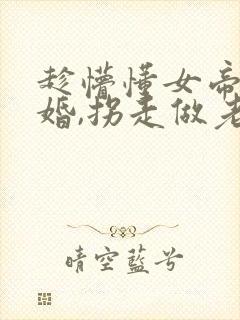 趁懵懂女帝
婚,拐走做老
晴空蓝兮